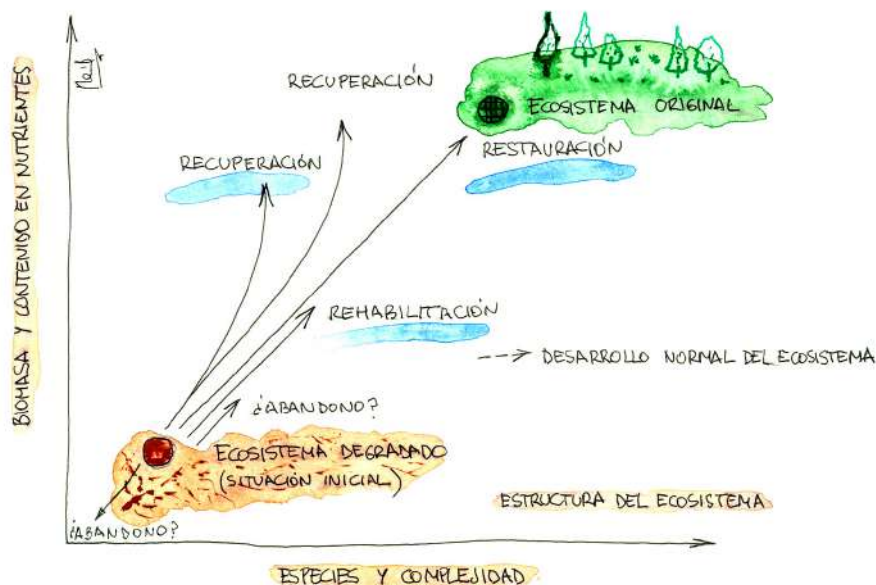 BIOMASA Y CONTENIDO EN NUTRIENTES
RECUPERACIÓN
ECOSISTEMA ORIGINAL
RECUPERACIÓN
RESTAURACIÓN
REHABILITACIÓN
DESARROLLO NORMAL DEL ECOSISTEMA
¿ABANDONO?
ECOSISTEMA DEGRADADO
(SITUACIÓN INICIAL)
ESTRUCTURA DEL ECOSISTEMA
¿ABANDONO?
ESPECIES Y COMPLEJIDAD